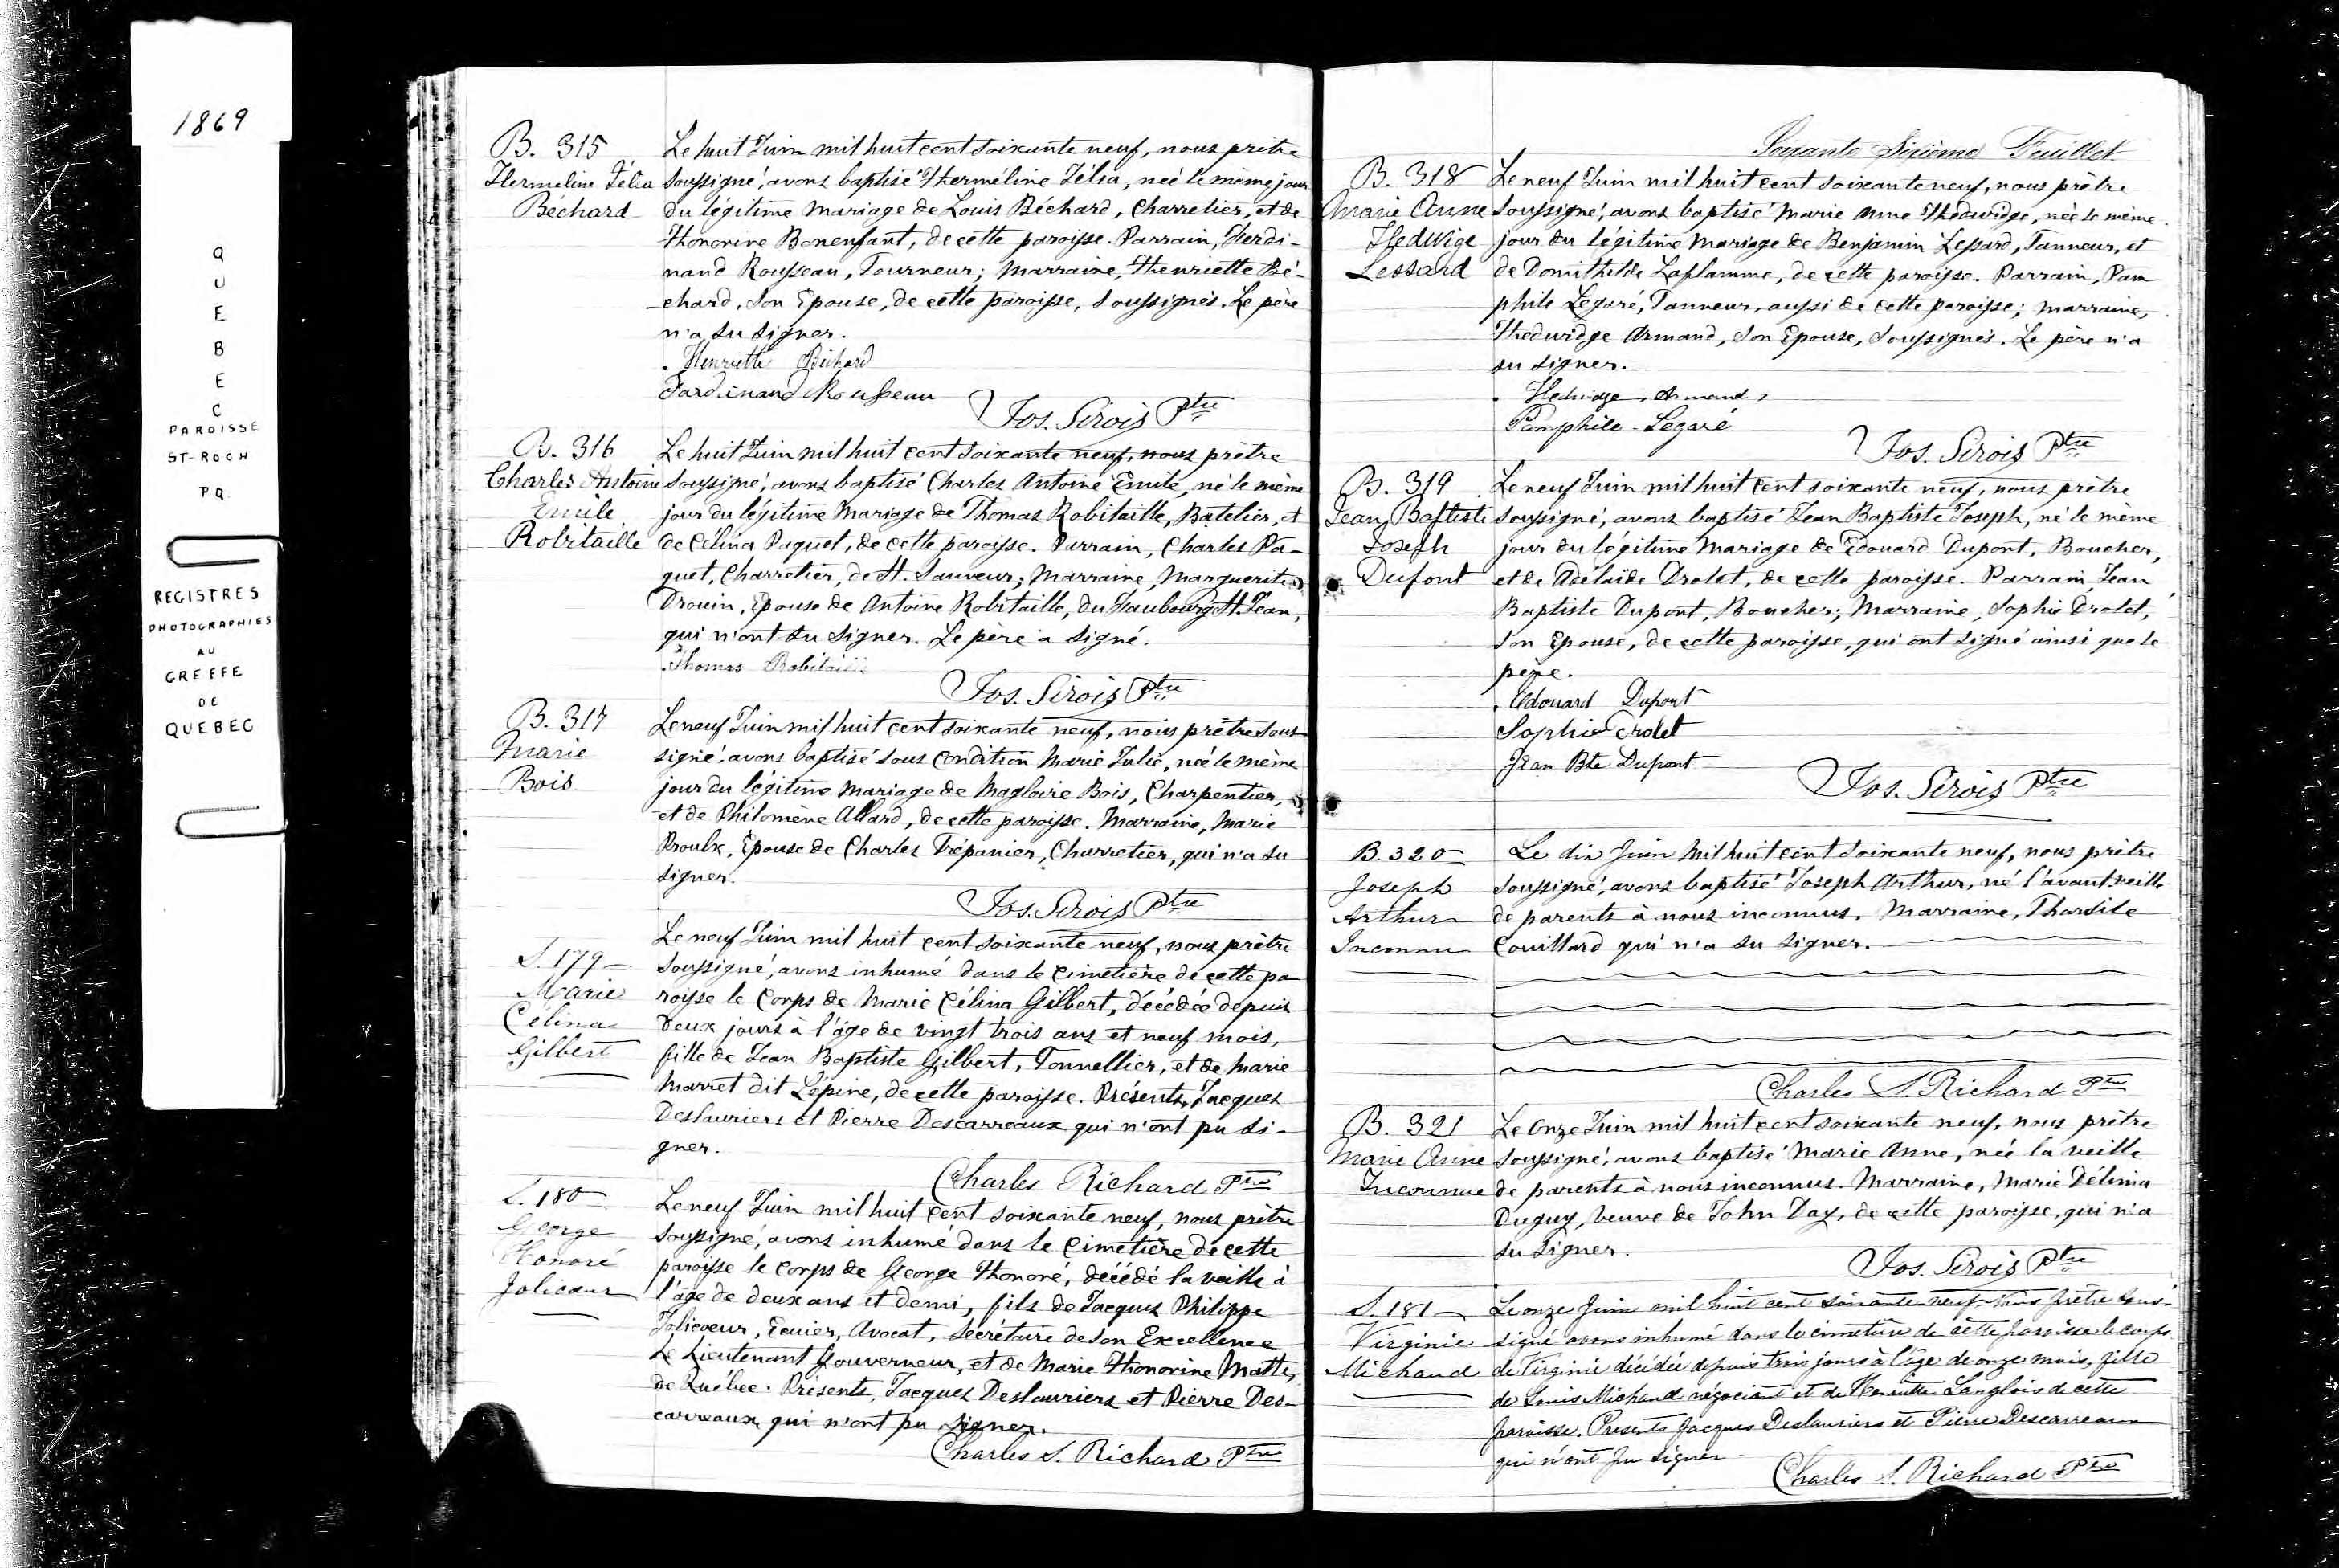 1869
QUEBEC
PAROISSE
ST-ROCH
P.Q.
REGISTRES
PHOTOGRAPHIES
AU
GREFFE
DE
QUEBEC
B. 315
Herméline Zélia
Béchard
Le huit Juin mil huit cent soixante neuf, nous prêtre
soussigné, avons baptisé Herméline Zélia, née le même jour
du légitime mariage de Louis Béchard, Charretier, et de
Honorine Bonenfant, de cette paroisse. Parrain, Ferdi-
nand Rousseau, Tourneur; Marraine, Henriette Bé-
chard, son Epouse, de cette paroisse, soussignés. Le père
n'a su signer.
Henriette Béchard
Fardinand Rousseau
Jos. Sirois Ptre
B. 316
Charles Antoine
Emile
Robitaille
Le huit Juin mil huit cent soixante neuf, nous prêtre
soussigné, avons baptisé Charles Antoine Emile, né le même
jour du légitime Mariage de Thomas Robitaille, Batelier, et
de Célina Paquet, de cette paroisse. Parrain, Charles Pa-
quet, Charretier, de St. Sauveur; Marraine, Marguerite
Drouin, Epouse de Antoine Robitaille, du Faubourg St. Jean,
qui n'ont su signer. Le père a signé.
Thomas Robitaille
Jos. Sirois Ptre
B. 317
Marie
Bois
Le neuf Juin mil huit cent soixante neuf, nous prêtre sous
signé, avons baptisé sous condition Marie Julie, née le même
jour du légitime mariage de Magloire Bois, Charpentier,
et de Philomène Allard, de cette paroisse. Marraine, Marie
Proulx, Epouse de Charles Trépanier, Charretier, qui n'a su
signer.
Jos. Sirois Ptre
S. 179
Marie
Célina
Gilbert
Le neuf Juin mil huit cent soixante neuf, nous prêtre
soussigné, avons inhumé dans le cimetière de cette pa
roisse le Corps de Marie Célina Gilbert, décédée depuis
deux jours à l'âge de vingt trois ans et neuf mois,
fille de Jean Baptiste Gilbert, Tonnellier, et de Marie
Marret dit Lépine, de cette paroisse. Présents, Jacques
Deslauriers et Pierre Descarreaux qui n'ont pu si-
gner.
Charles Richard Ptre
S. 180
George
Honoré
Jolicoeur
Le neuf Juin mil huit cent soixante neuf, nous prêtre
soussigné, avons inhumé dans le Cimetière de cette
paroisse le Corps de George Honoré, décédé la veille à
l'âge de deux ans et demi, fils de Jacques Philippe
Jolicoeur, Ecuier, Avocat, Secrétaire de Son Excellence
Le Lieutenant Gouverneur, et de Marie Honorine Matte,
de Québec. Présents, Jacques Deslauriers et Pierre Des-
carreaux qui n'ont pu signer.
Charles S. Richard Ptre
Soixante Sixième Feuillet
B. 318
Marie Anne
Hedwige
Lessard
Le neuf Juin mil huit cent soixante neuf, nous prêtre
soussigné, avons baptisé Marie Anne Hedwidge, née le même
jour du légitime mariage de Benjamin Lessard, Tanneur, et
de Domithilde Laflamme, de cette paroisse. Parrain, Pam
phile Légaré, Tanneur, aussi de cette paroisse; Marraine,
Hedwidge Armand, son Epouse, soussignés. Le père n'a
su signer.
Hedwidge Armand
Pamphile Légaré
Jos. Sirois Ptre
B. 319
Jean Baptiste
Joseph
Dupont
Le neuf Juin mil huit cent soixante neuf, nous prêtre
soussigné, avons baptisé Jean Baptiste Joseph, né le même
jour du légitime mariage de Edouard Dupont, Boucher,
et de Adélaïde Drolet, de cette paroisse. Parrain Jean
Baptiste Dupont, Boucher; Marraine, Sophie Drolet,
son Epouse, de cette paroisse, qui ont signé ainsi que le
père.
Edouard Dupont
Sophie Drolet
Jean Bte Dupont
Jos. Sirois Ptre
B. 320
Joseph
Arthur
Inconnu
Le dix Juin mil huit cent soixante neuf, nous prêtre
soussigné, avons baptisé Joseph Arthur, né l'avant veille
de parents à nous inconnus. Marraine, Tharsile
Couillard qui n'a su signer.
Charles S. Richard Ptre
B. 321
Marie Anne
Inconnue
Le onze Juin mil huit cent soixante neuf, nous prêtre
soussigné, avons baptisé Marie Anne, née la veille
de parents à nous inconnus. Marraine, Marie Délima
Duguy, veuve de John Day, de cette paroisse, qui n'a
su signer.
Jos. Sirois Ptre
S. 181
Virginie
Michaud
Le onze Juin mil huit cent soixante neuf, nous prêtre sous-
signé avons inhumé dans le cimetière de cette paroisse le corps
de Virginie décédée depuis trois jours à l'âge de onze mois, fille
de Louis Michaud négociant et de Henriette Langlois de cette
paroisse. Présents Jacques Deslauriers et Pierre Descarreaux
qui n'ont pu signer
Charles S. Richard Ptre